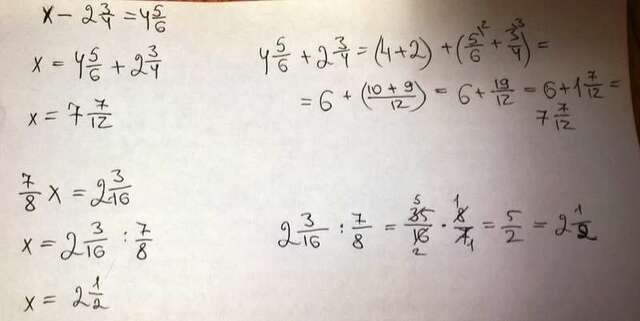 x - 2 3/4 = 4 5/6
x = 4 5/6 + 2 3/4
x = 7 7/12
4 5/6 + 2 3/4 = (4+2) + (5/6 ² + 3/4 ³) =
= 6 + (10 + 9/12) = 6 + 19/12 = 6 + 1 7/12 =
7 7/12
7/8 x = 2 3/16
x = 2 3/16 : 7/8
x = 2 1/2
2 3/16 : 7/8 = 35 5/16 2 · 8 1/7 1 = 5/2 = 2 1/2